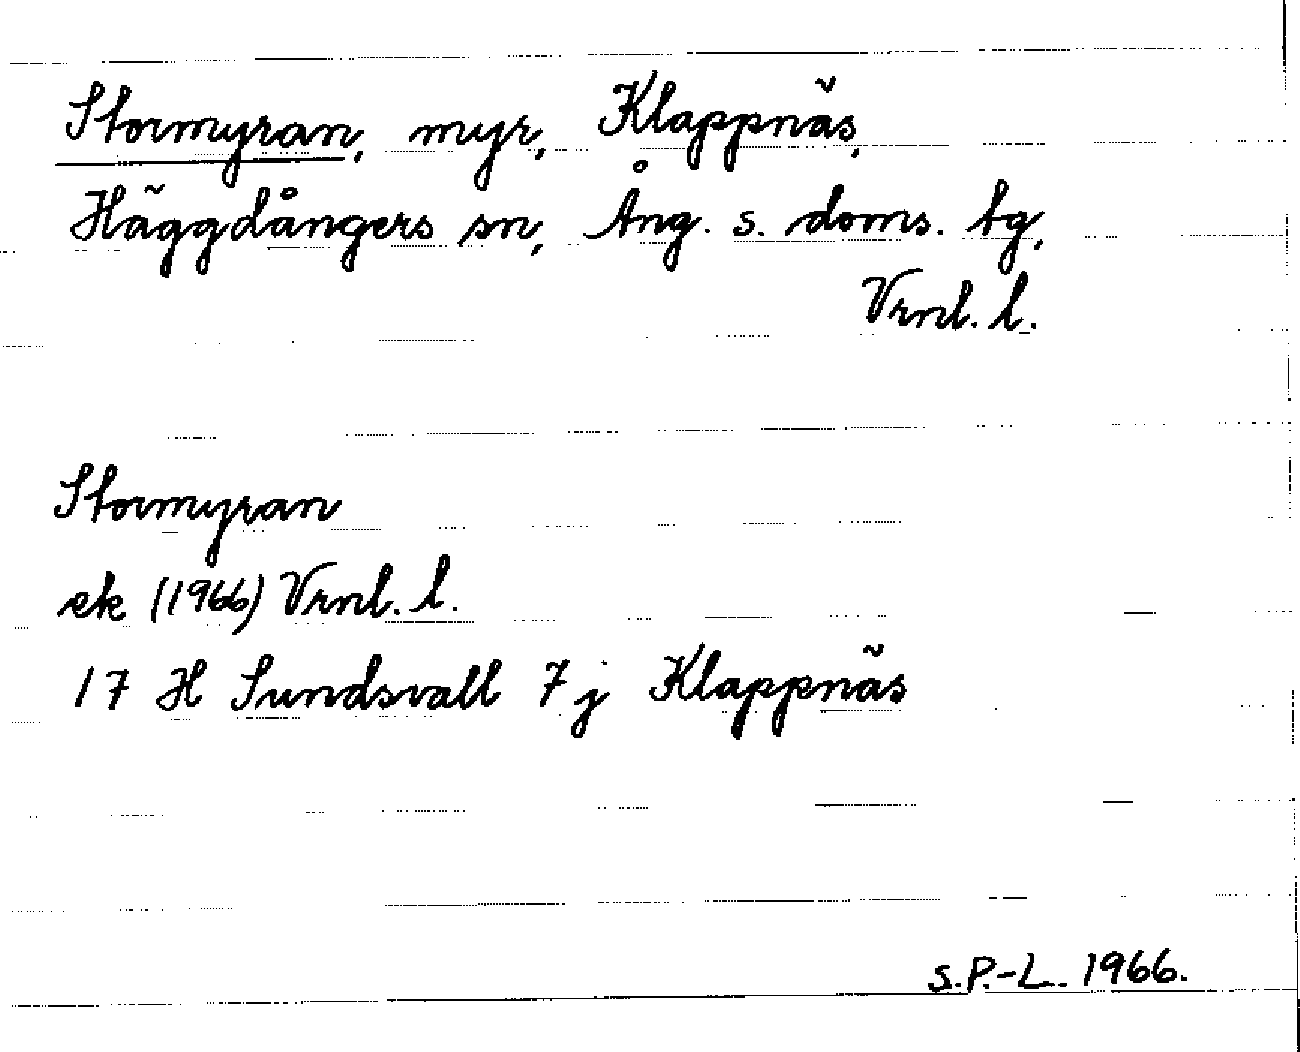 Stormyran, myr, Klappnäs,
Häggdångers sn, Ång. s. doms. tg,
Vrnl. l.
Stormyran
ek (1966) Vrnl. l.
17 H Sundsvall 7 j Klappnäs
S.P.-L. 1966.